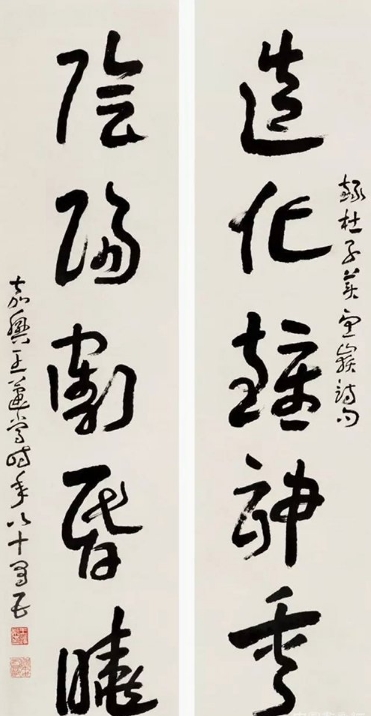 造化鍾神秀
錄杜子美望嶽詩句
陰陽割昏曉
嘉興王蘧常時年八十有五